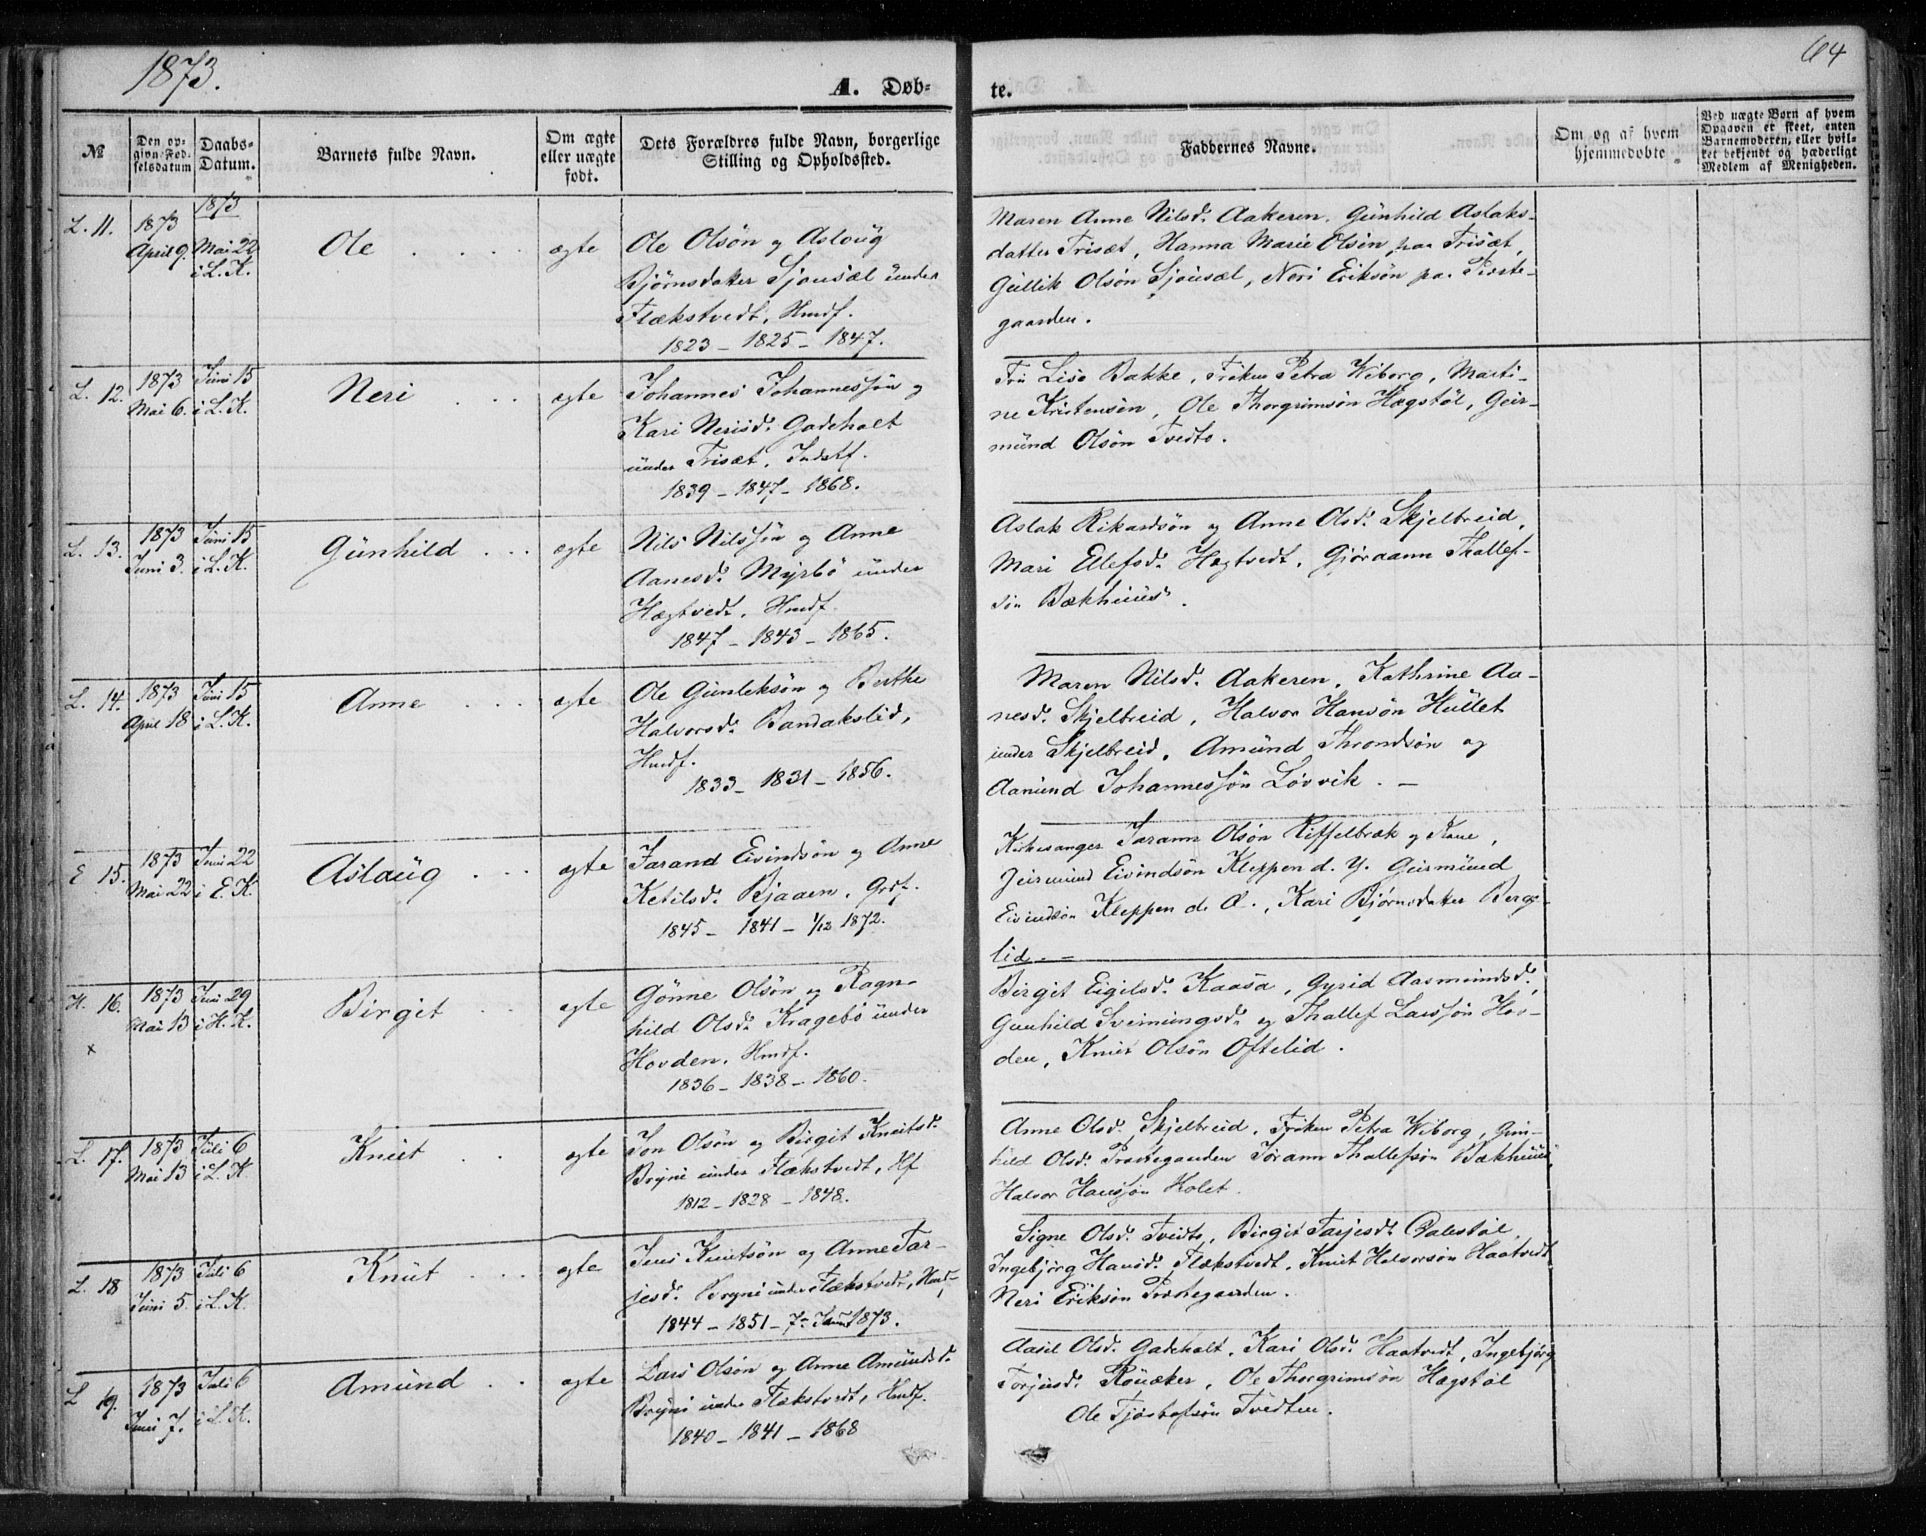 1873.
64
A. Døb-
te.
№
Den op-
givne Fød-
selsdatum
Daabs-
Datum.
Barnets fulde Navn.
Om ægte
eller uægte
født.
Dets Forældres fulde Navn, borgerlige
Stilling og Opholdssted.
Faddernes Navne.
Om og af hvem
hjemmedøbte
Ved uægte Børn af hvem
Opgaven er skeet, enten
Barnemoderen, eller hvil-
ket bekjendt og hæderligt
Medlem af Menigheden.
L. 11.
1873
April 9.
1873
Mai 22
i L. K.
Ole
ægte
Ole Olsøn og Aslaug
Bjørnsdatter Sjousæl under
Flækstvedt, Hmdf.
1823 - 1825 - 1847.
Maren Anne Nilsd. Aakeren, Gunhild Aslaks-
datter Trisæt, Hanna Marie Olsøn paa Trisæt,
Gullik Olsøn Sjousæl, Neri Eriksøn paa Præste-
gaarden.
L. 12.
1873
Mai 6.
Juni 15
i L. K.
Neri
ægte
Johannes Johannessøn og
Kari Nerisd. Gadeholt
under Trisæt, Indstf.
1839 - 1847 - 1868.
Fru Lise Bakke, Frøken Petra Wiborg, Marti-
ne Kristensøn, Ole Thorgrimsøn Hægstøl, Geir-
mund Olsøn Tvedto.
L. 13.
1873
Juni 3.
Juni 15
i L. K.
Gunhild
ægte
Nils Nilssøn og Anne
Aanesd. Myrbø under
Hægtvedt, Hmdf.
1847 - 1843 - 1865.
Aslak Rikardsøn og Anne Olsd. Skjelbreid,
Mari Ellefsd. Hægtvedt, Gjøraann Thallef-
søn Bækhuus.
L. 14.
1873
April 18
Juni 15
i L. K.
Anne
ægte
Ole Gunleksøn og Berthe
Halvorsd. Bandakslid,
Hmdf.
1833 - 1831 - 1856.
Maren Nilsd. Aakeren, Kathrine Aa-
nesd. Skjelbreid, Halvor Hansøn Hullet
under Skjelbreid, Amund Throndsøn og
Aanund Johannessøn Løvvik. -
E 15.
1873
Mai 22
Juni 22
i E. K.
Aslaug
ægte
Tarand Eivindsøn og Anne
Ketilsd. Bjaaen, Grdf.
1845 - 1841 - 1/12 1872.
Kirkesanger Tarann Olsøn Riffelbræk og Kone,
Geirmund Eivindsøn Kleppen d. Y. Geirmund
Eivindsøn Kleppen d. Æ., Kari Bjørnsdatter Berge-
lid. -
H. 16.
x
1873
Mai 13
Juni 29
i H. K.
Birgit
ægte
Gønne Olsøn og Ragn-
hild Olsd. Kragebø under
Hovden, Hmdf.
1836 - 1838 - 1860.
Birgit Eigilsd. Kaasa, Gyrid Aasmundsd.,
Gunhild Sveinungsd. og Thallef Larssøn Hov-
den, Knut Olsøn Oftelid.
L. 17.
1873
Mai 13
Juli 6
i L. K.
Knut
ægte
Jon Olsøn og Birgit Knutsd.
Bryni under Flækstvedt, Hf
1812 - 1828 - 1848.
Anne Olsd. Skjelbreid, Frøken Petra Wiborg, Gun-
hild Olsd. Præstegaarden Jørann Thallefsøn Bækhuus,
Halvor Hanssøn Holet.
L. 18
1873
Juni 5.
Juli 6
i L. K.
Knut
ægte
Jens Knutsøn og Anne Tar-
jesd. Bryni under Flækstvedt, Hmdf,
1844 - 1851 - 7de Januar 1873.
Signe Olsd. Tvedto, Birgit Tarjesd. Dalestøl,
Ingebjørg Hansd. Flækstvedt, Knut Halvorsøn Haatvedt
Neri Eriksøn Præstegaarden.
L 19.
1873
Juni 7.
Juli 6
i L. K.
Amund
ægte
Lars Olsøn og Anne Amundsd.
Bryni under Flækstvedt, Hmdf.
1840 - 1841 - 1868
Aasil Olsd. Gadeholt, Kari Olsd. Haatvedt, Ingebjørg
Torjusd. Røuaker, Ole Thorgrimsøn Hægstøl
Ole Tjøstolfsøn Tvedten.